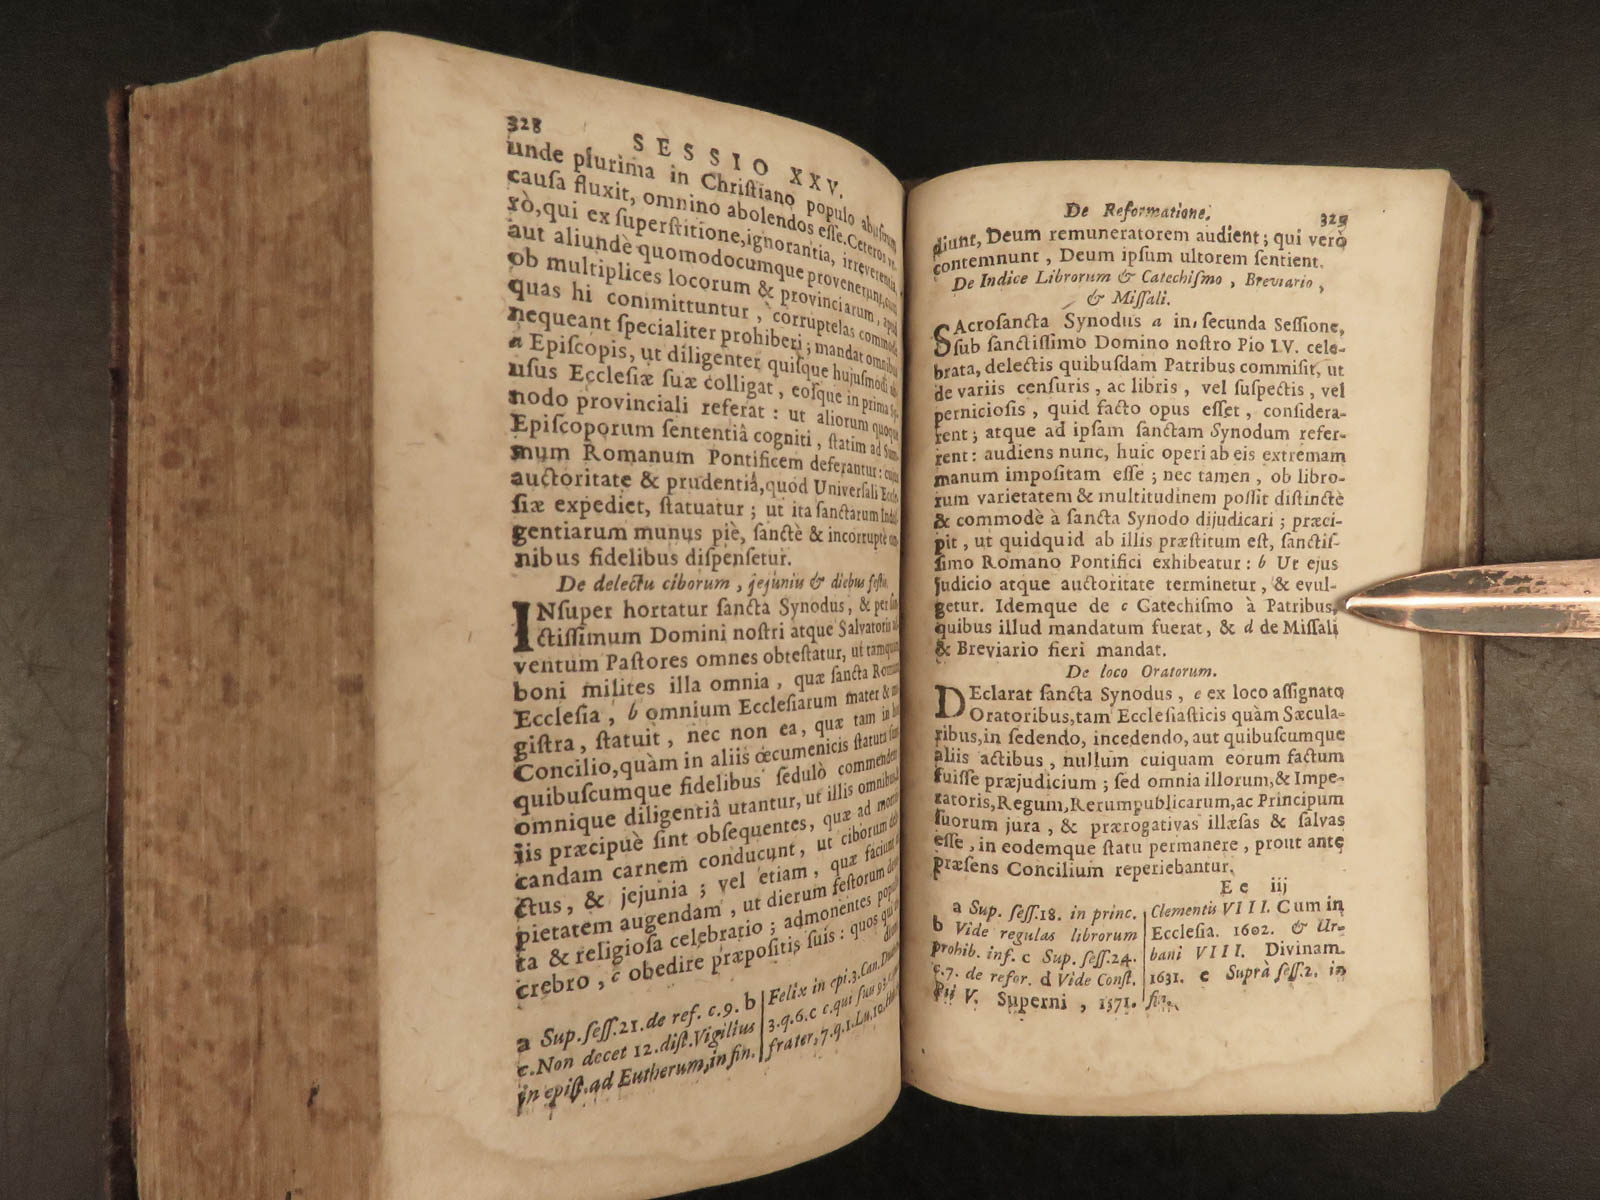 328
SESSIO XXV.
unde plurima in Christiano populo abusuum
causa fluxit, omnino abolendos esse. Ceteros ve-
rò, qui ex superstitione, ignorantia, irreverentia,
aut aliundè quomodocumque provenerunt, cum
ob multiplices locorum & provinciarum, apud
quas hi committuntur, corruptelas commodè
nequeant specialiter prohiberi; mandat omnibus
a Episcopis, ut diligenter quisque hujusmodi ab-
usus Ecclesiæ suæ colligat, eosque in prima Sy-
nodo provinciali referat: ut aliorum quoque
Episcoporum sententiâ cogniti, statim ad Sum-
mum Romanum Pontificem deferantur: cujus
auctoritate & prudentiâ, quod Universali Eccle-
siæ expediet, statuatur; ut ita sanctarum Indul-
gentiarum munus piè, sanctè & incorruptè om-
nibus fidelibus dispensetur.
De delectu ciborum, jejuniis & diebus festis.
INsuper hortatur sancta Synodus, & per san-
ctissimum Domini nostri atque Salvatoris ad-
ventum Pastores omnes obtestatur, ut tamquam
boni milites illa omnia, quæ sancta Romana
Ecclesia, b omnium Ecclesiarum mater & ma-
gistra, statuit, nec non ea, quæ tam in hoc
Concilio, quàm in aliis œcumenicis statuta sunt,
quibuscumque fidelibus sedulò commendent,
omnique diligentiâ utantur, ut illis omnibus,
iis præcipuè sint obsequentes, quæ ad mortifi-
candam carnem conducunt, ut ciborum dele-
ctus, & jejunia; vel etiam, quæ faciunt ad
pietatem augendam, ut dierum festorum devo-
ta & religiosa celebratio; admonentes populos
crebro, c obedire præpositis suis: quos qui au-
diunt,
a Sup. sess. 21. de ref. c. 9. b
c. Non decet 12. dist. Vigilius
in epist. ad Eutherum, in fin.
Felix in epi. 3. Can.
3. q. 6. c c. qui sus 93.
frater, 7. q. 1. Lu. 10.
De Reformatione.
329
diunt, Deum remuneratorem audient; qui verò
contemnunt, Deum ipsum ultorem sentient.
De Indice Librorum & Catechismo, Breviario,
& Missali.
SAcrosancta Synodus a in, secunda Sessione,
sub sanctissimo Domino nostro Pio IV. cele-
brata, delectis quibusdam Patribus commisit, ut
de variis censuris, ac libris, vel suspectis, vel
perniciosis, quid facto opus esset, considera-
rent; atque ad ipsam sanctam Synodum refer-
rent: audiens nunc, huic operi ab eis extremam
manum impositam esse; nec tamen, ob libro-
rum varietatem & multitudinem possit distinctè
& commodè à sancta Synodo dijudicari; præci-
pit, ut quidquid ab illis præstitum est, sanctis-
simo Romano Pontifici exhibeatur: b Ut ejus
judicio atque auctoritate terminetur, & evul-
getur. Idemque de c Catechismo à Patribus,
quibus illud mandatum fuerat, & d de Missali
& Breviario fieri mandat.
De loco Oratorum.
DEclarat sancta Synodus, e ex loco assignato
Oratoribus, tam Ecclesiasticis quàm Sæcula-
ribus, in sedendo, incedendo, aut quibuscumque
aliis actibus, nullum cuiquam eorum factum
fuisse præjudicium; sed omnia illorum, & Impe-
ratoris, Regum, Rerumpublicarum, ac Principum
suorum jura, & prærogativas illæsas & salvas
esse, in eodemque statu permanere, prout ante
præsens Concilium reperiebantur.
Ee iij
a Sup. sess. 18. in princ.
b Vide regulas librorum
prohib. inf. c Sup. sess. 24.
c. 7. de refor. d Vide Const.
Pii V. Superni, 1571.
Clementis VIII. Cum in
Ecclesia. 1602. & Ur-
bani VIII. Divinam.
1631. e Suprà sess. 2. in
fin.